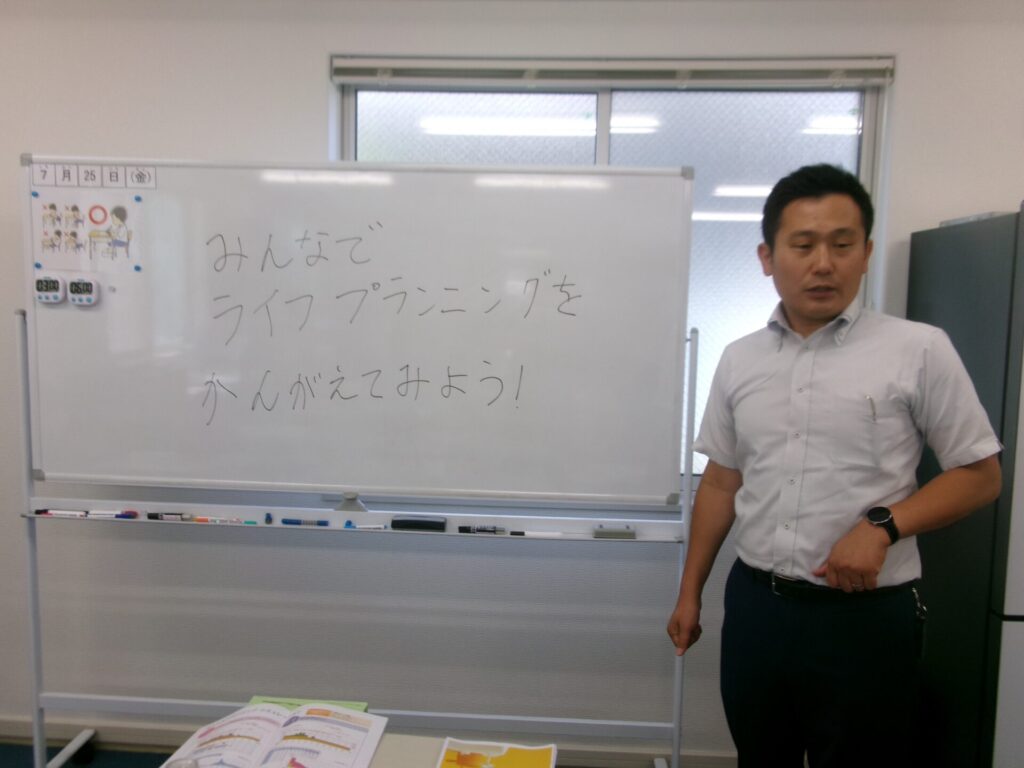 7月25日(金)
みんなで
ライフプランニングを
かんがえてみよう!
03:00 05:00